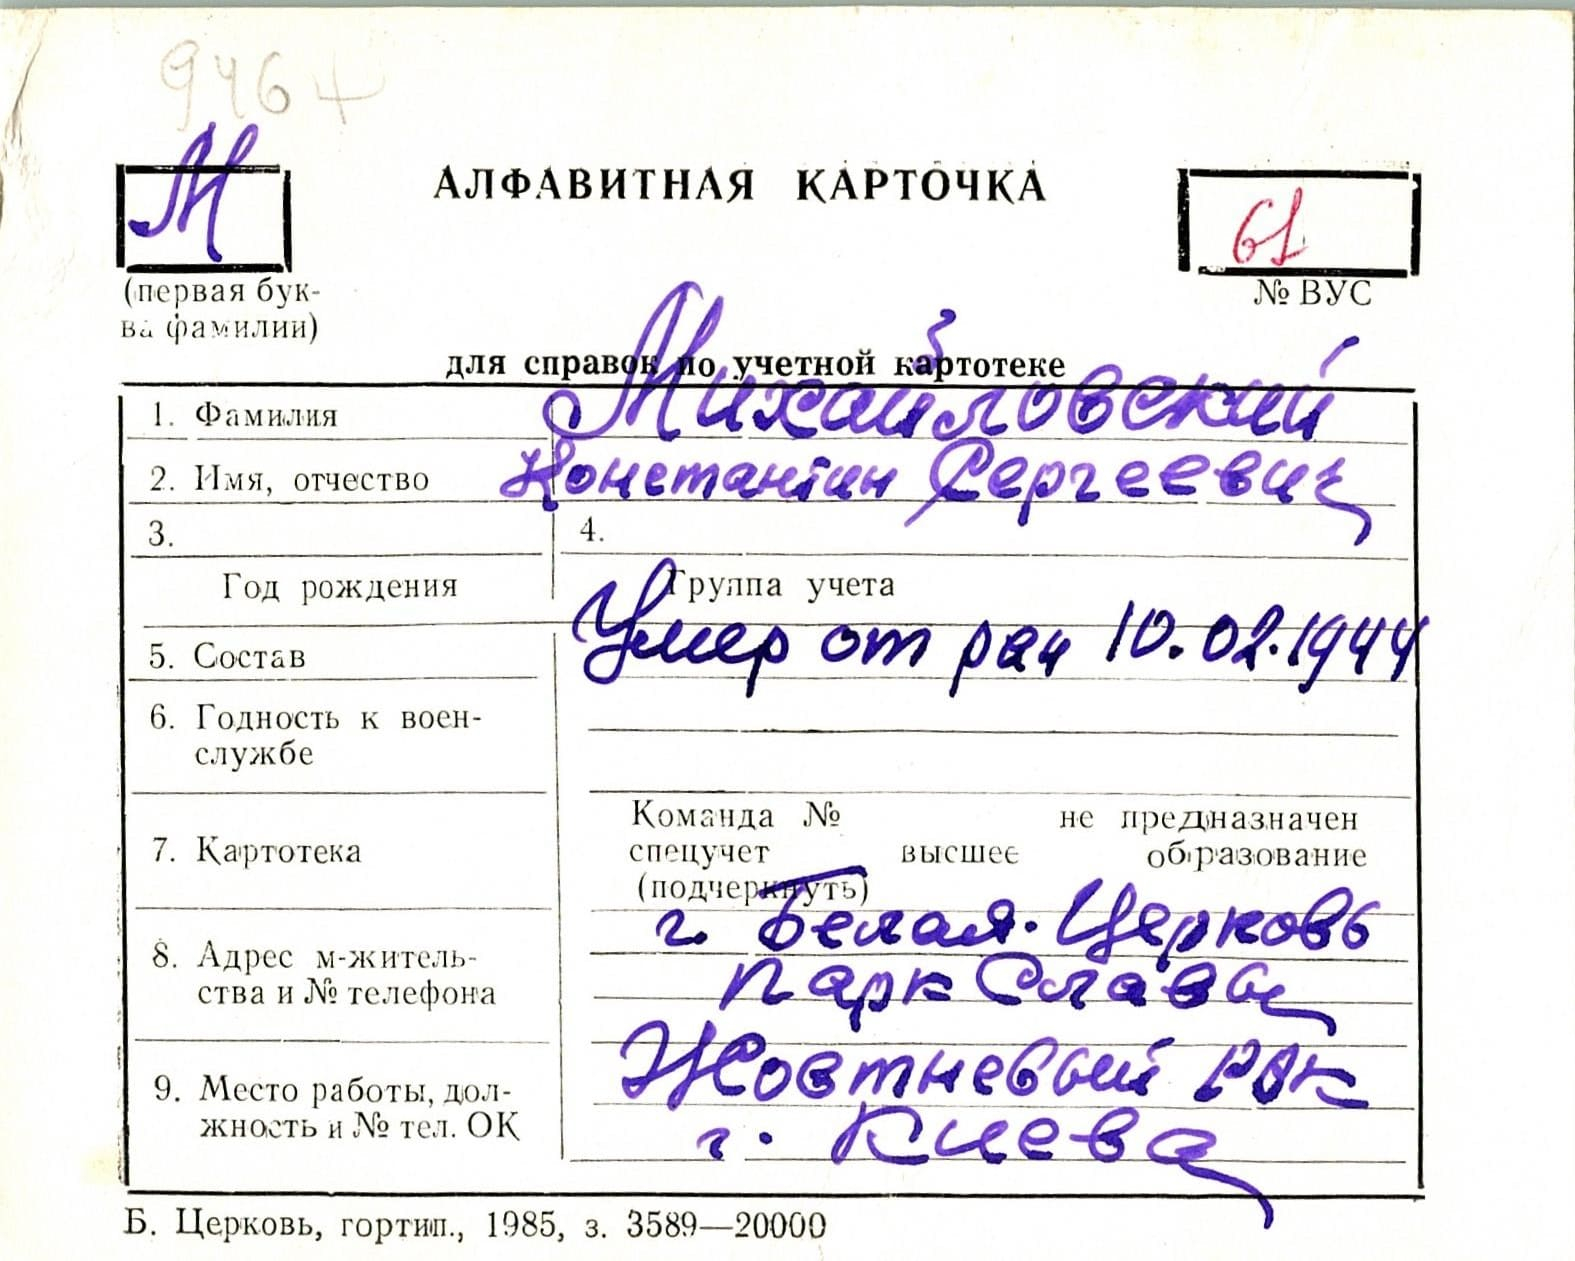 946 +
М
АЛФАВИТНАЯ КАРТОЧКА
61
(первая бук-
ва фамилии)
№ ВУС
для справок по учетной картотеке
1. Фамилия Михайловский
2. Имя, отчество Константин Сергеевич
3. 4.
Год рождения Группа учета
5. Состав Умер от ран 10.02.1944
6. Годность к воен-
службе
Команда № не предназначен
7. Картотека спецучет высшее образование
(подчеркнуть)
г. Белая. Церковь
8. Адрес м-житель-
ства и № телефона парк Славы
Жовтневый РВК
9. Место работы, дол-
жность и № тел. ОК г. Киева
Б. Церковь, гортип., 1985, з. 3589—20000